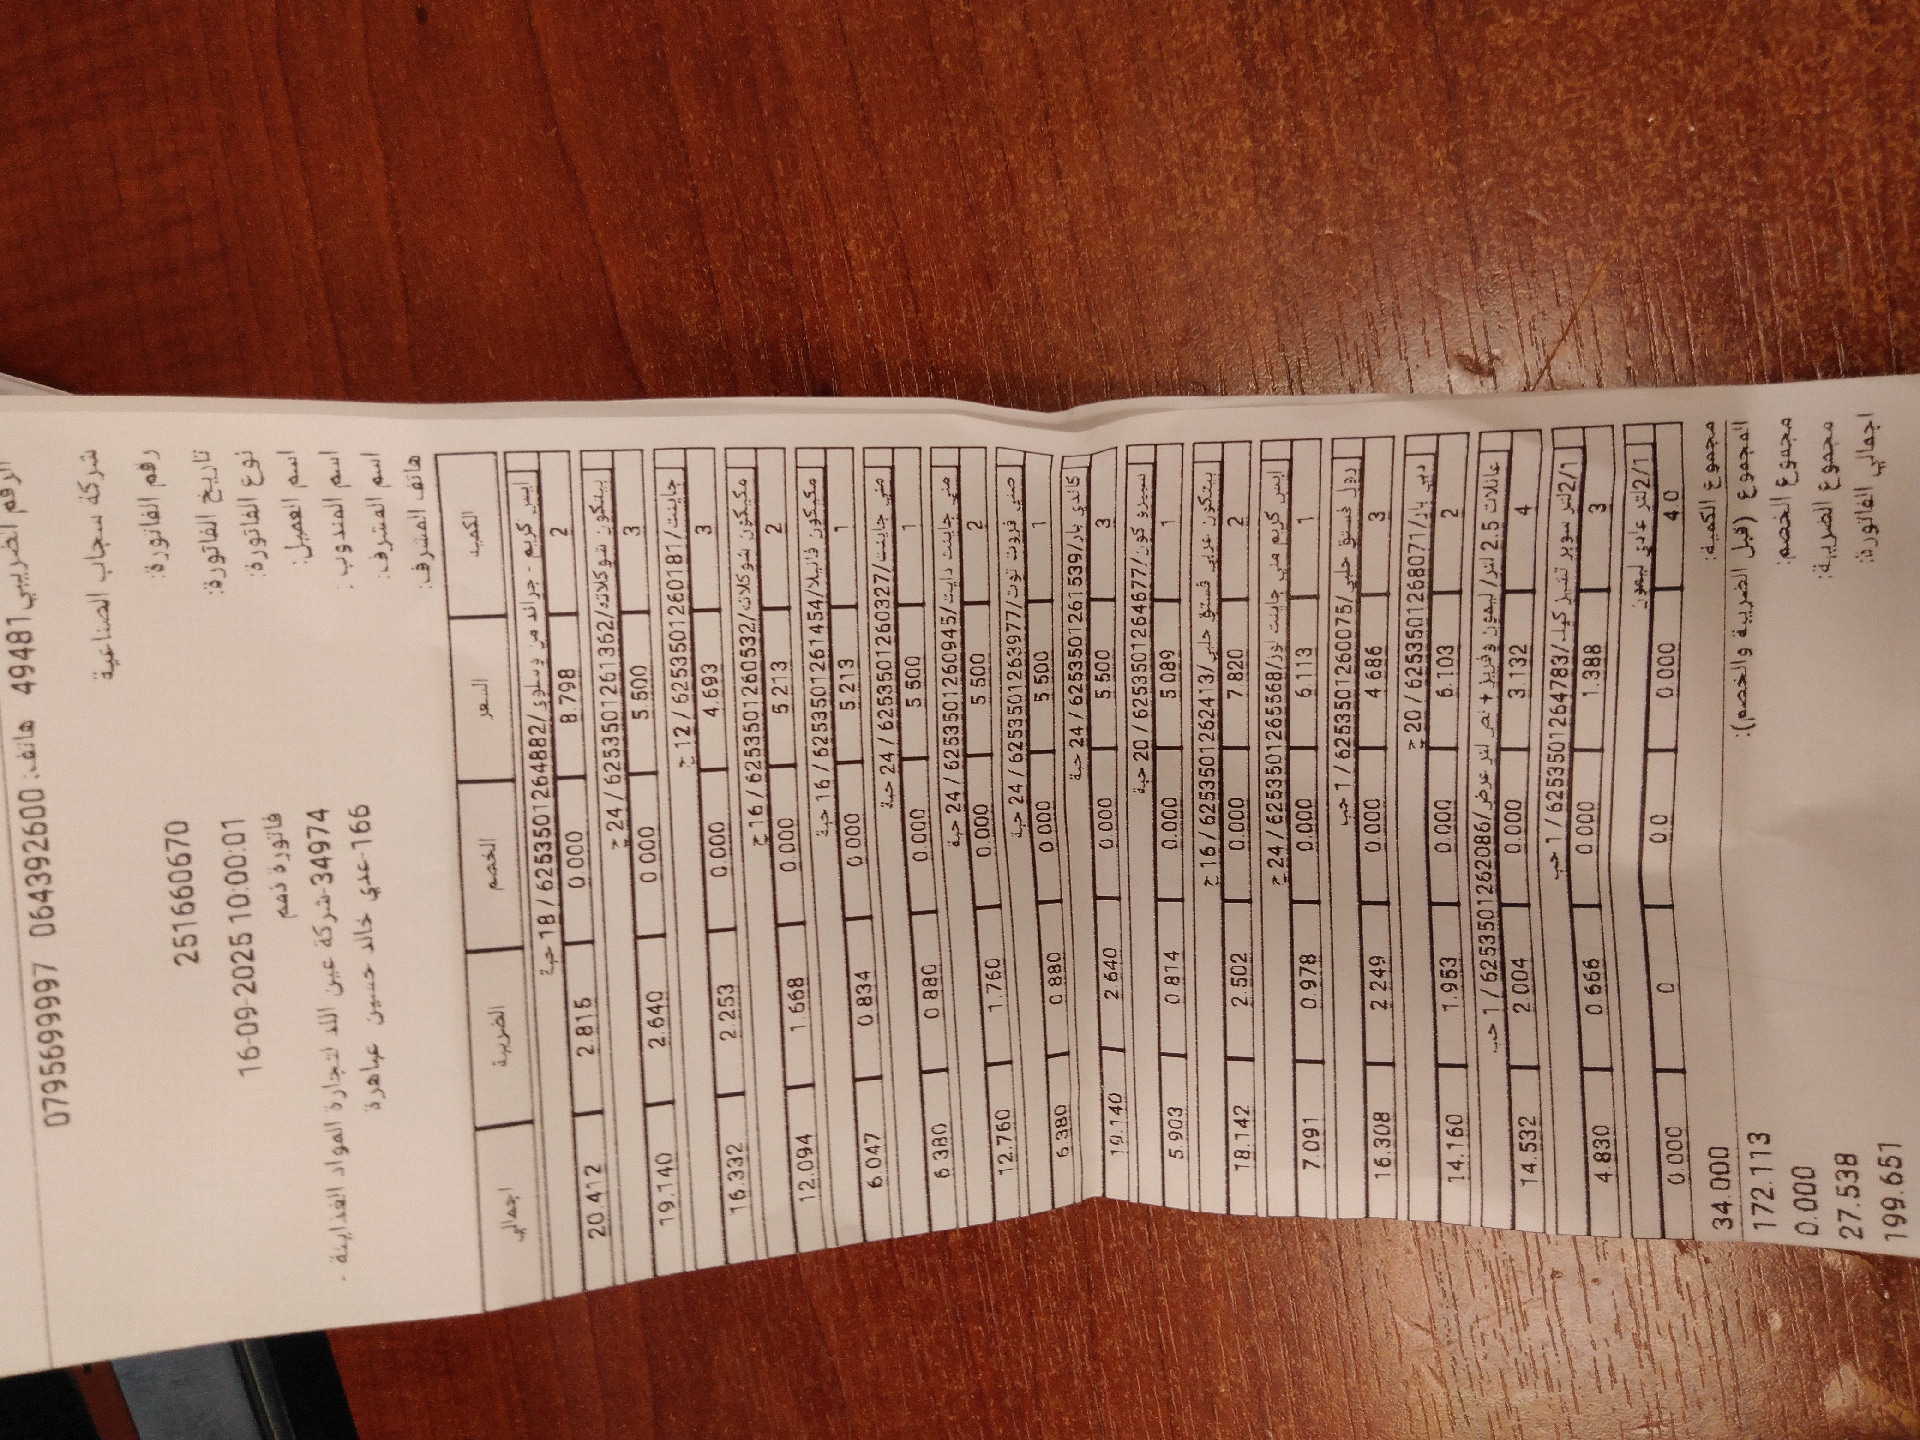 الرقم الضريبي 49481 هاتف: 0643926000 0795699997
شركة سجاب الصناعية
رقم الفاتورة: 251660670
تاريخ الفاتورة: 16-09-2025 10:00:01
نوع الفاتورة: فاتورة ذمم
اسم العميل: 34974-شركة عين اللد لتجارة المواد الغذائية -
اسم المندوب: 166-عدي خالد حسين عباهرة
اسم المشرف:
هاتف المشرف:
الكمية السعر الخصم الضريبة اجمالي
ايس كريم - جراند من وسلوى/6253501264882 / 18 حبة
2 8.798 0.000 2.815 20.412
بيتكون شوكلاته/6253501261362 / 24 ح
3 5.500 0.000 2.640 19.140
جاينت/6253501260181 / 12 ح
3 4.693 0.000 2.253 16.332
مكيكون شوكلاته/6253501260532 / 16 ح
2 5.213 0.000 1.668 12.094
مكيكون فانيلا/6253501261454 / 16 حبة
1 5.213 0.000 0.834 6.047
مني جاينت/6253501260327 / 24 حبة
1 5.500 0.000 0.880 6.380
مني جاينت دايت/6253501260945 / 24 حبة
2 5.500 0.000 1.760 12.760
صني فروت توت/6253501263977 / 24 حبة
1 5.500 0.000 0.880 6.380
كاندي بار/6253501261539 / 24 حبة
3 5.500 0.000 2.640 19.140
سيرو كون/6253501264677 / 20 حبة
1 5.089 0.000 0.814 5.903
بيتكون عربي فستق حلبي/6253501262413 / 16 ح
2 7.820 0.000 2.502 18.142
ايس كريم مني جاينت لوز/6253501265568 / 24 ح
1 6.113 0.000 0.978 7.091
رول فستق حلبي/6253501260075 / 1 حب
3 4.686 0.000 2.249 16.308
دبي بار/6253501268071 / 20 ح
2 6.103 0.000 1.953 14.160
عائلات 2.5 لتر/ليمون وفريز + نص لتر عرض/6253501262086 / 1 حب
4 3.132 0.000 2.004 14.532
1/2لتر سوبر تشيز كيك/6253501264783 / 1 حب
3 1.388 0.000 0.666 4.830
1/2لتر عادي ليمون
4.0 0.000 0.0 0 0.000
مجموع الكمية: 34.000
المجموع (قبل الضريبة والخصم): 172.113
مجموع الخصم: 0.000
مجموع الضريبة: 27.538
اجمالي الفاتورة: 199.651